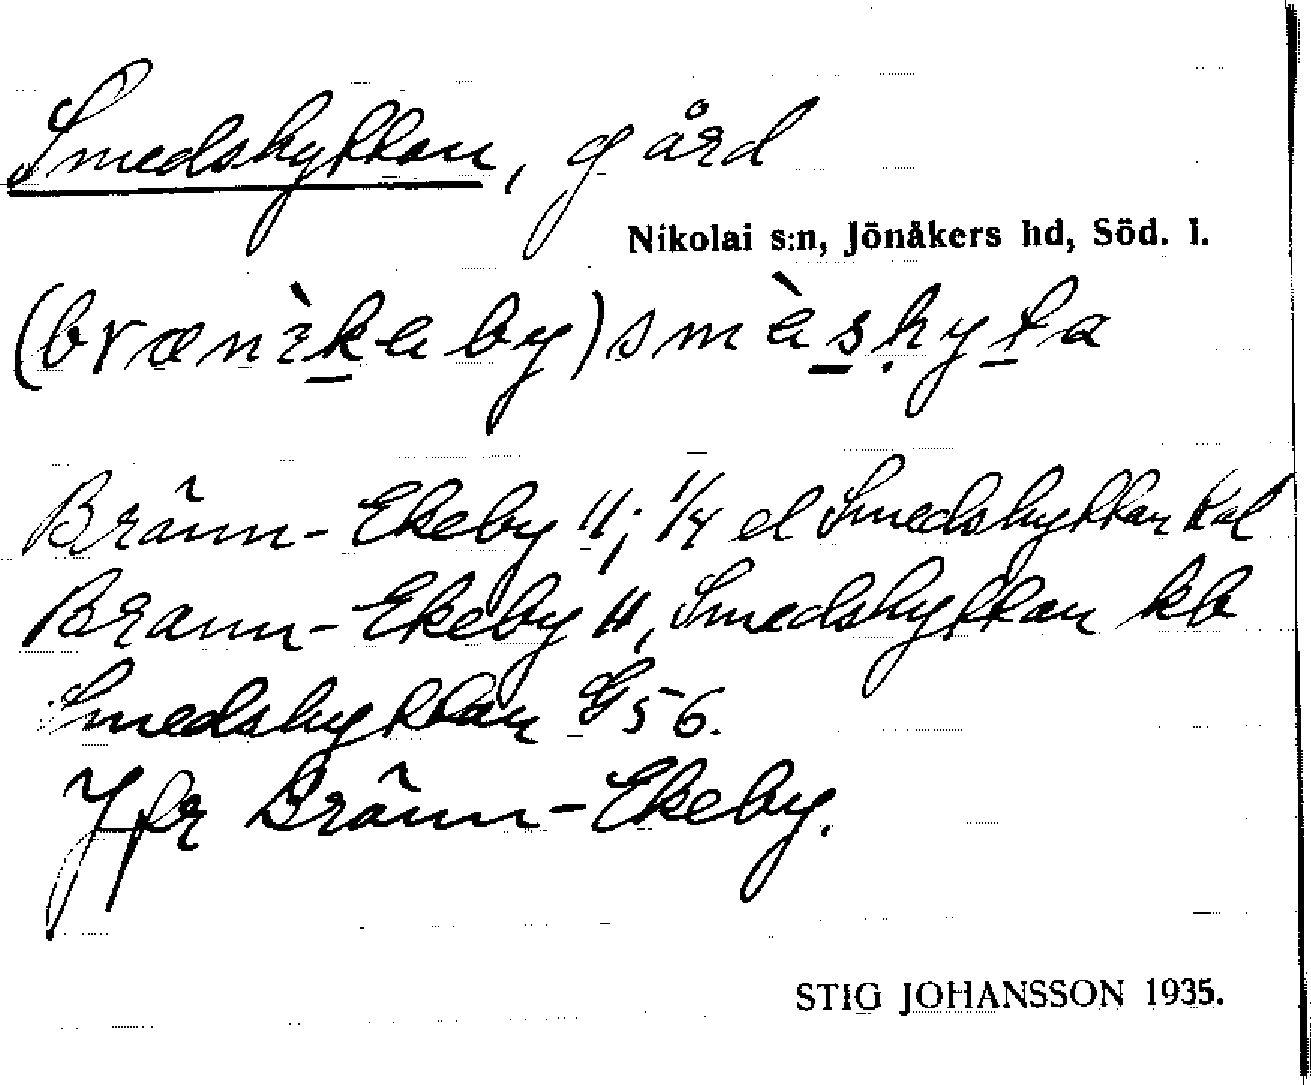 Smedshyttan, gård
Nikolai s:n, Jönåkers hd, Söd. l.
(brænèkeby) smèshyta
Bränn-Ekeby 4; 1/4 el Smedshyttan
Bränn-Ekeby 4, Smedshyttan kb
Smedshyttan G 56.
Jfr Bränn-Ekeby.
STIG JOHANSSON 1935.